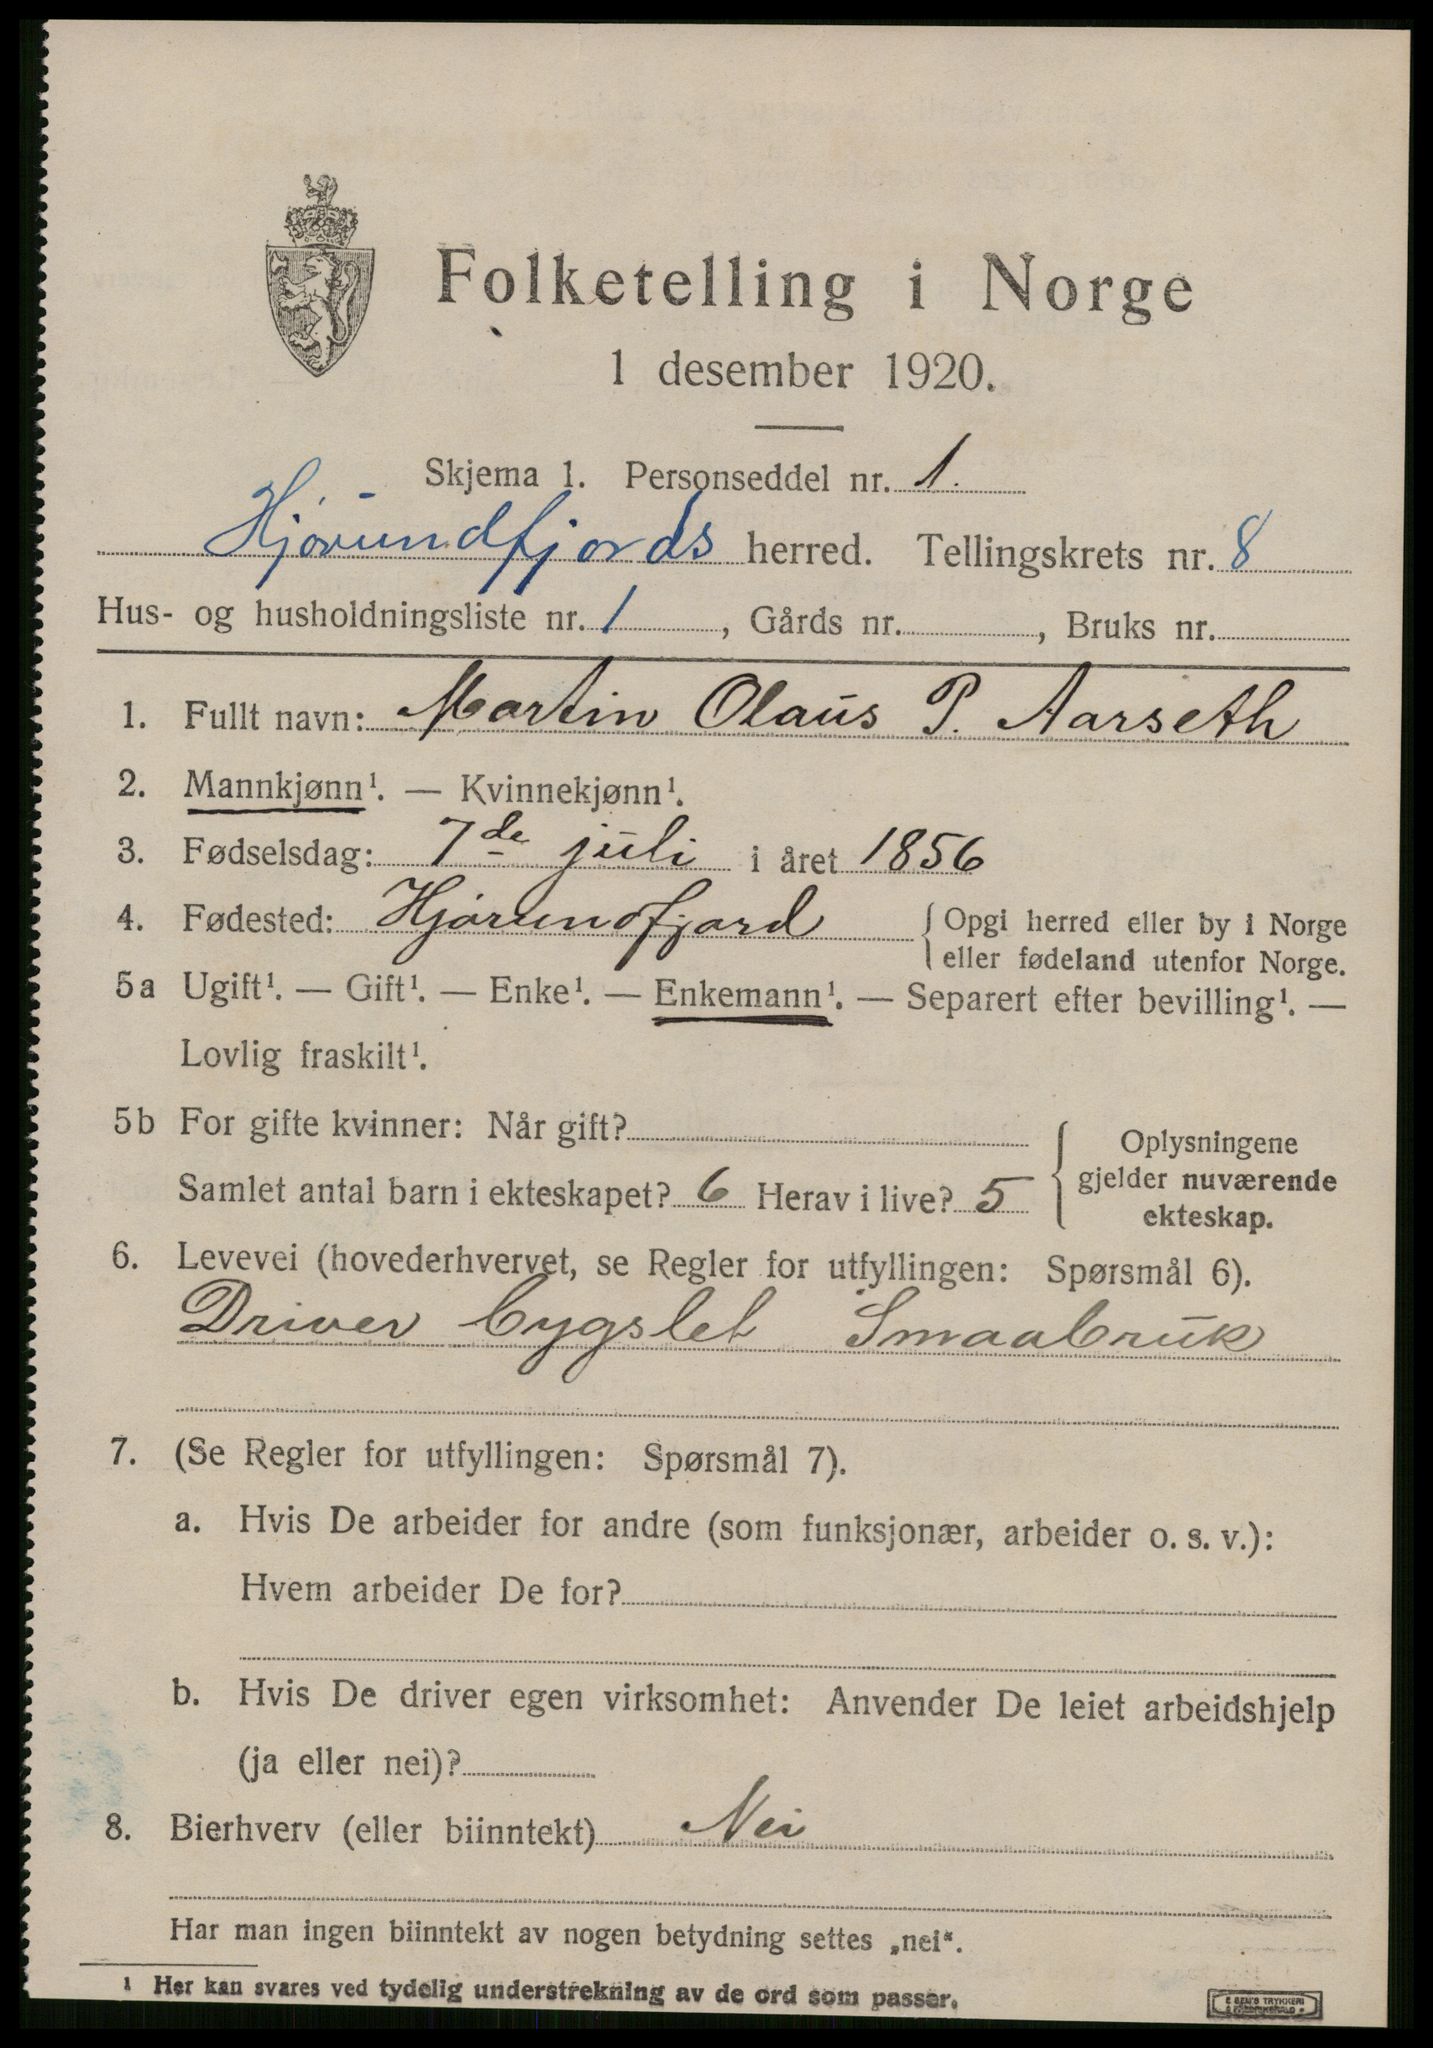 Folketelling i Norge
1 desember 1920.
Skjema 1. Personseddel nr. 1.
Hjørundfjords herred. Tellingskrets nr. 8
Hus- og husholdningsliste nr. 1, Gårds nr. , Bruks nr.
1. Fullt navn: Martin Olaus P. Aarseth
2. Mannkjønn¹. — Kvinnekjønn¹.
3. Fødselsdag: 7de juli i året 1856
4. Fødested: Hjørundfjord { Opgi herred eller by i Norge
eller fødeland utenfor Norge.
5a Ugift¹. — Gift¹. — Enke¹. — Enkemann¹. — Separert efter bevilling¹. —
Lovlig fraskilt¹.
5b For gifte kvinner: Når gift?
Samlet antal barn i ekteskapet? 6 Herav i live? 5
{ Oplysningene
gjelder nuværende
ekteskap.
6. Levevei (hovederhvervet, se Regler for utfyllingen: Spørsmål 6).
Driver bygslet Smaabruk
7. (Se Regler for utfyllingen: Spørsmål 7).
a. Hvis De arbeider for andre (som funksjonær, arbeider o. s. v.):
Hvem arbeider De for?
b. Hvis De driver egen virksomhet: Anvender De leiet arbeidshjelp
(ja eller nei)?
8. Bierhverv (eller biinntekt) Nei
Har man ingen biinntekt av nogen betydning settes „nei“.
¹ Her kan svares ved tydelig understrekning av de ord som passer.